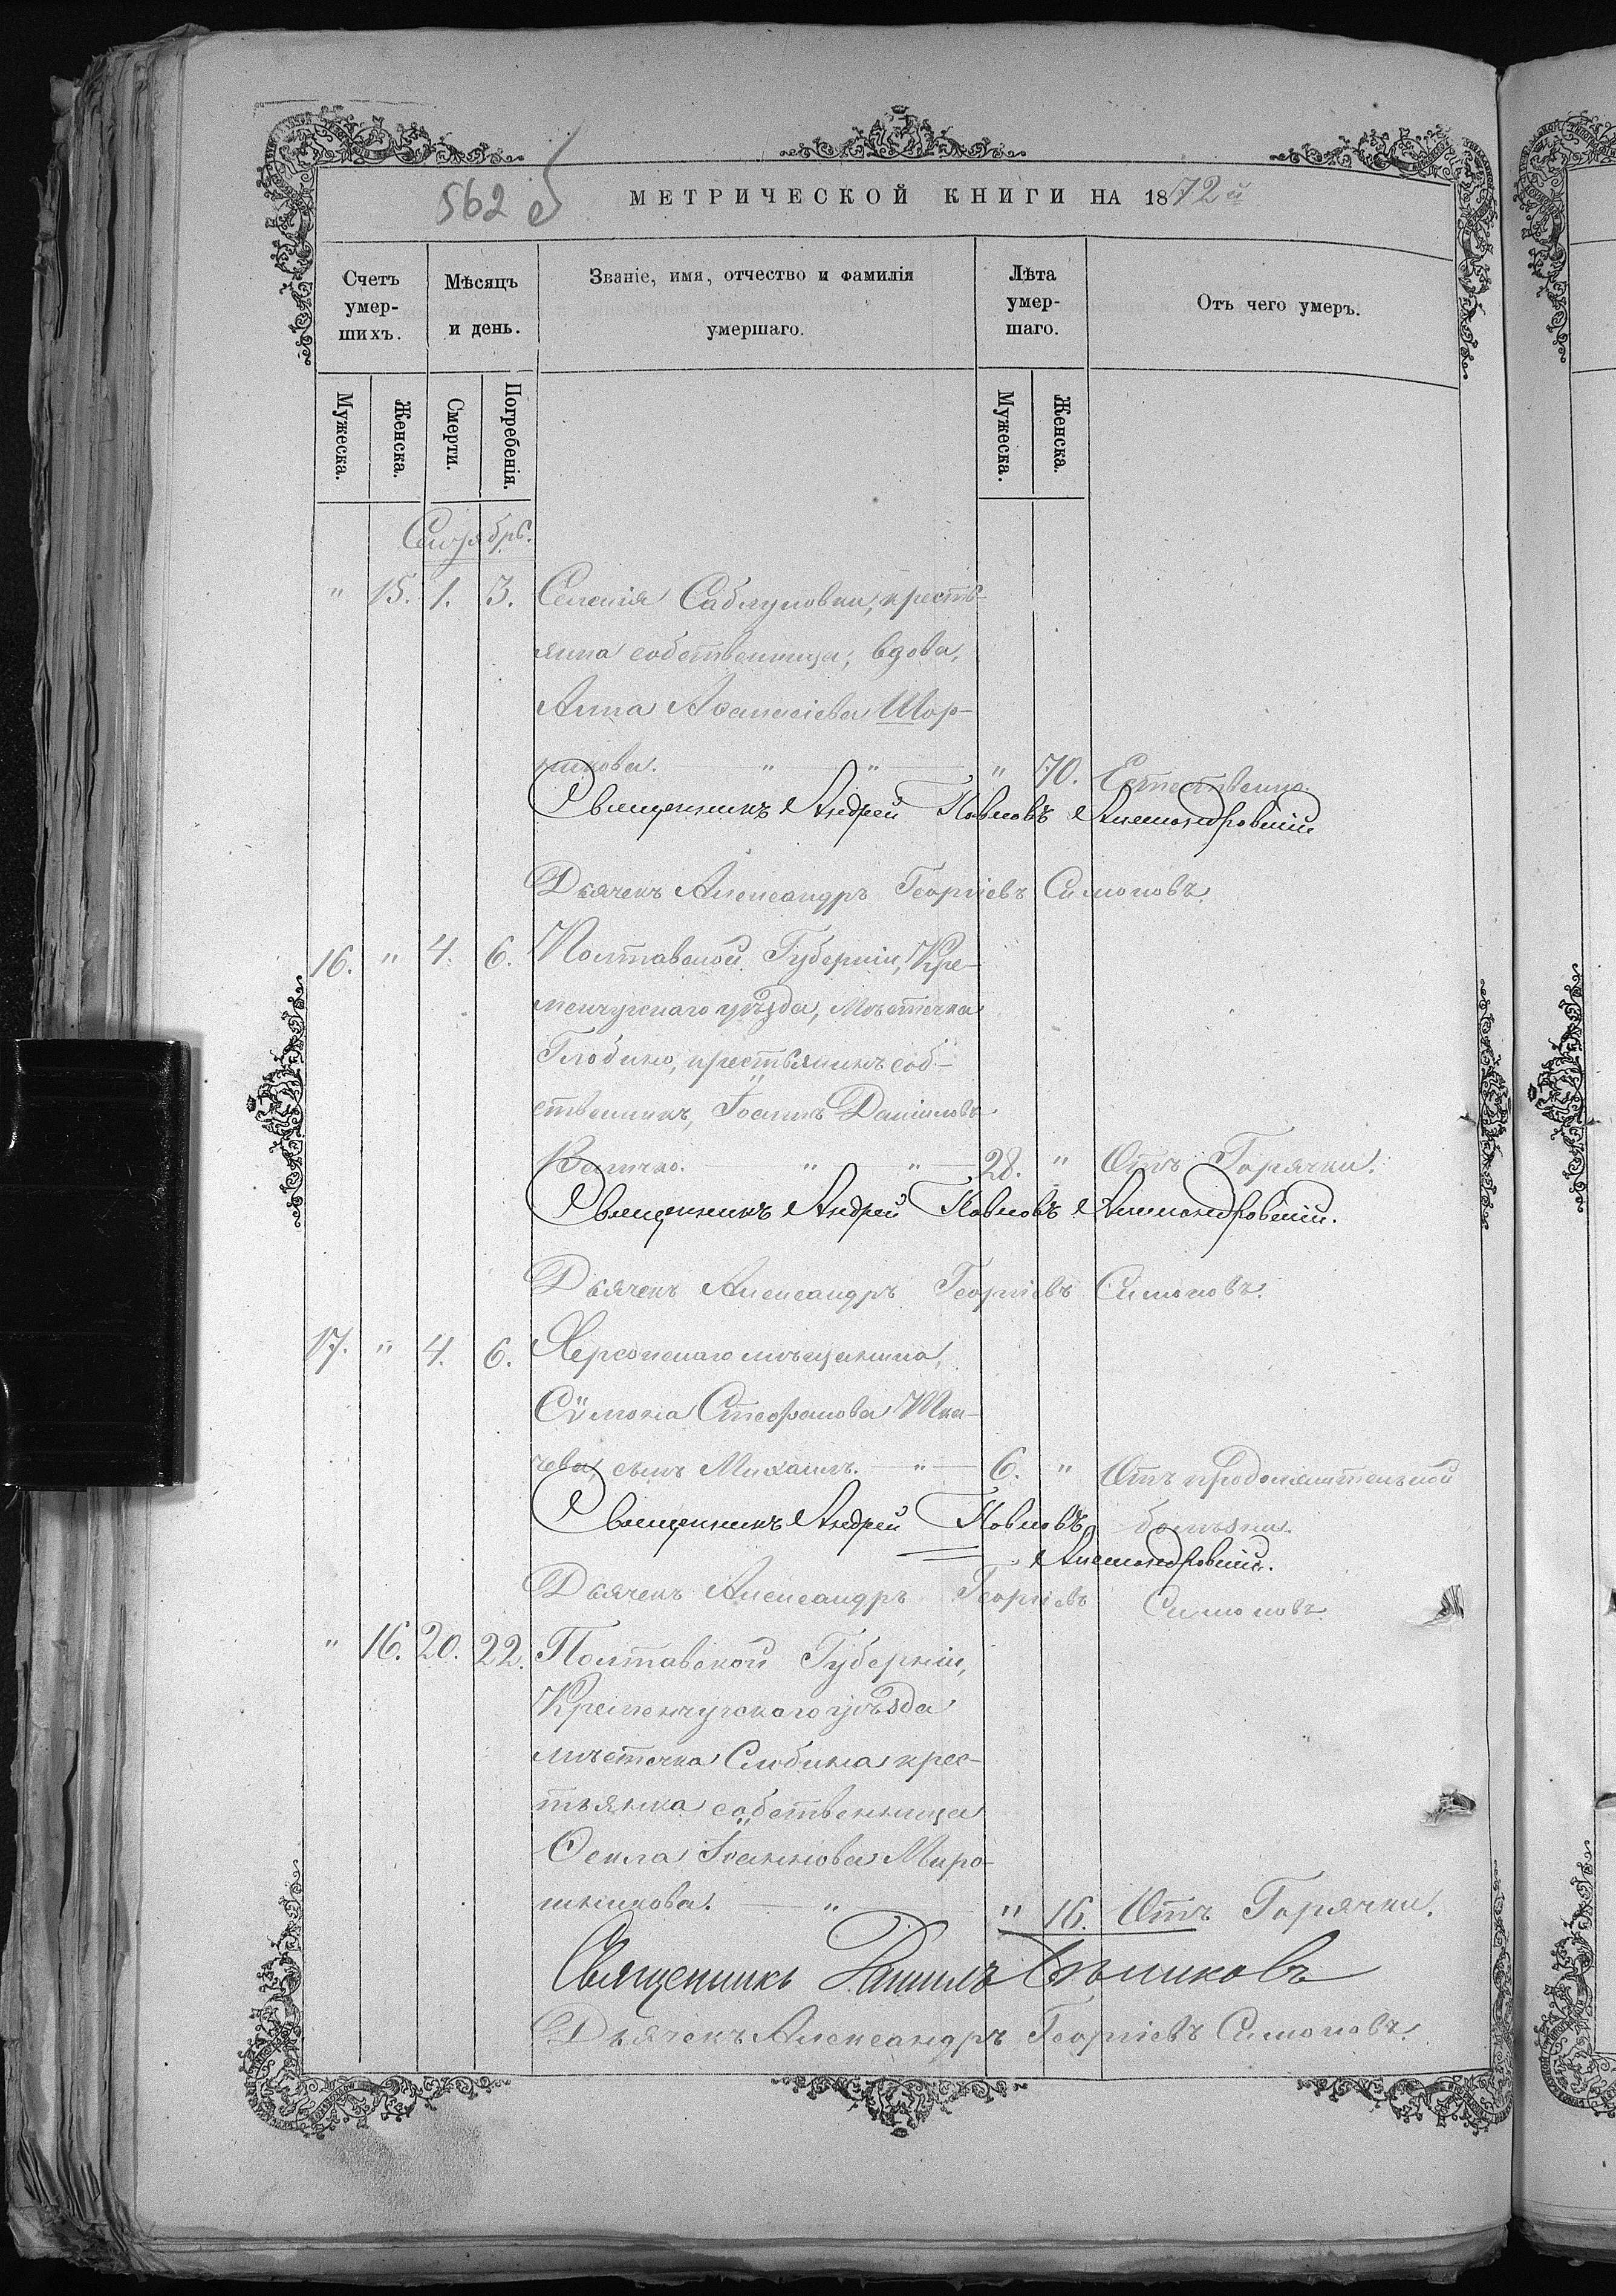 562 об
МЕТРИЧЕСКОЙ КНИГИ НА 1872 й
Счетъ умер-шихъ.
Мѣсяцъ и день.
Званіе, имя, отчество и фамилія умершаго.
Лѣта умер-шаго.
Отъ чего умеръ.
Мужеска.
Женска.
Смерти.
Погребенія.
Мужеска.
Женска.
Сентябрь.
" 15. 1. 3. Селенія Саблуковки, кресть-
янка собственница, вдова,
Анна Аѳанасіева Шор-
никова. " " " 70. Естественно.
Священникъ Андрей Павловъ Александровскій
Дьячекъ Александръ Георгіевъ Симоновъ.
16. " 4. 6. Полтавской Губерніи, Кре-
менчугскаго уѣзда, мѣстечка
Глобино, крестьянинъ соб-
ственникъ, Іоаннъ Даніиловъ
" " 28. " Отъ Горячки.
Священникъ Андрей Павловъ Александровскій.
Дьячекъ Александръ Георгіевъ Симоновъ.
17. " 4. 6. Херсонскаго мѣщанина,
Сѵмона Стефанова Тка-
чева, сынъ Михаилъ. " 6. " Отъ продолжительной
болѣзни.
Священникъ Андрей Павловъ
Александровскій.
Дьячекъ Александръ Георгіевъ Симоновъ.
" 16. 20. 22. Полтавской Губерніи,
Кременчугскаго уѣзда
мѣстечка крес-
тьянка собственница
Ѳекла Іоаннова Миро-
шникова. " " 16. Отъ Горячки.
Священникъ Даніилъ
Дьячекъ Александръ Георгіевъ Симоновъ.